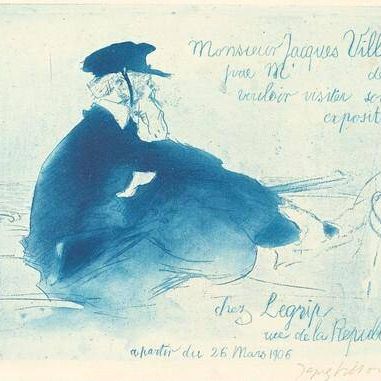 Monsieur Jacques Vill
prie M' d
vouloir visiter so
exposit
chez Legrip
rue de la Republ
a partir du 26 Mars 1906